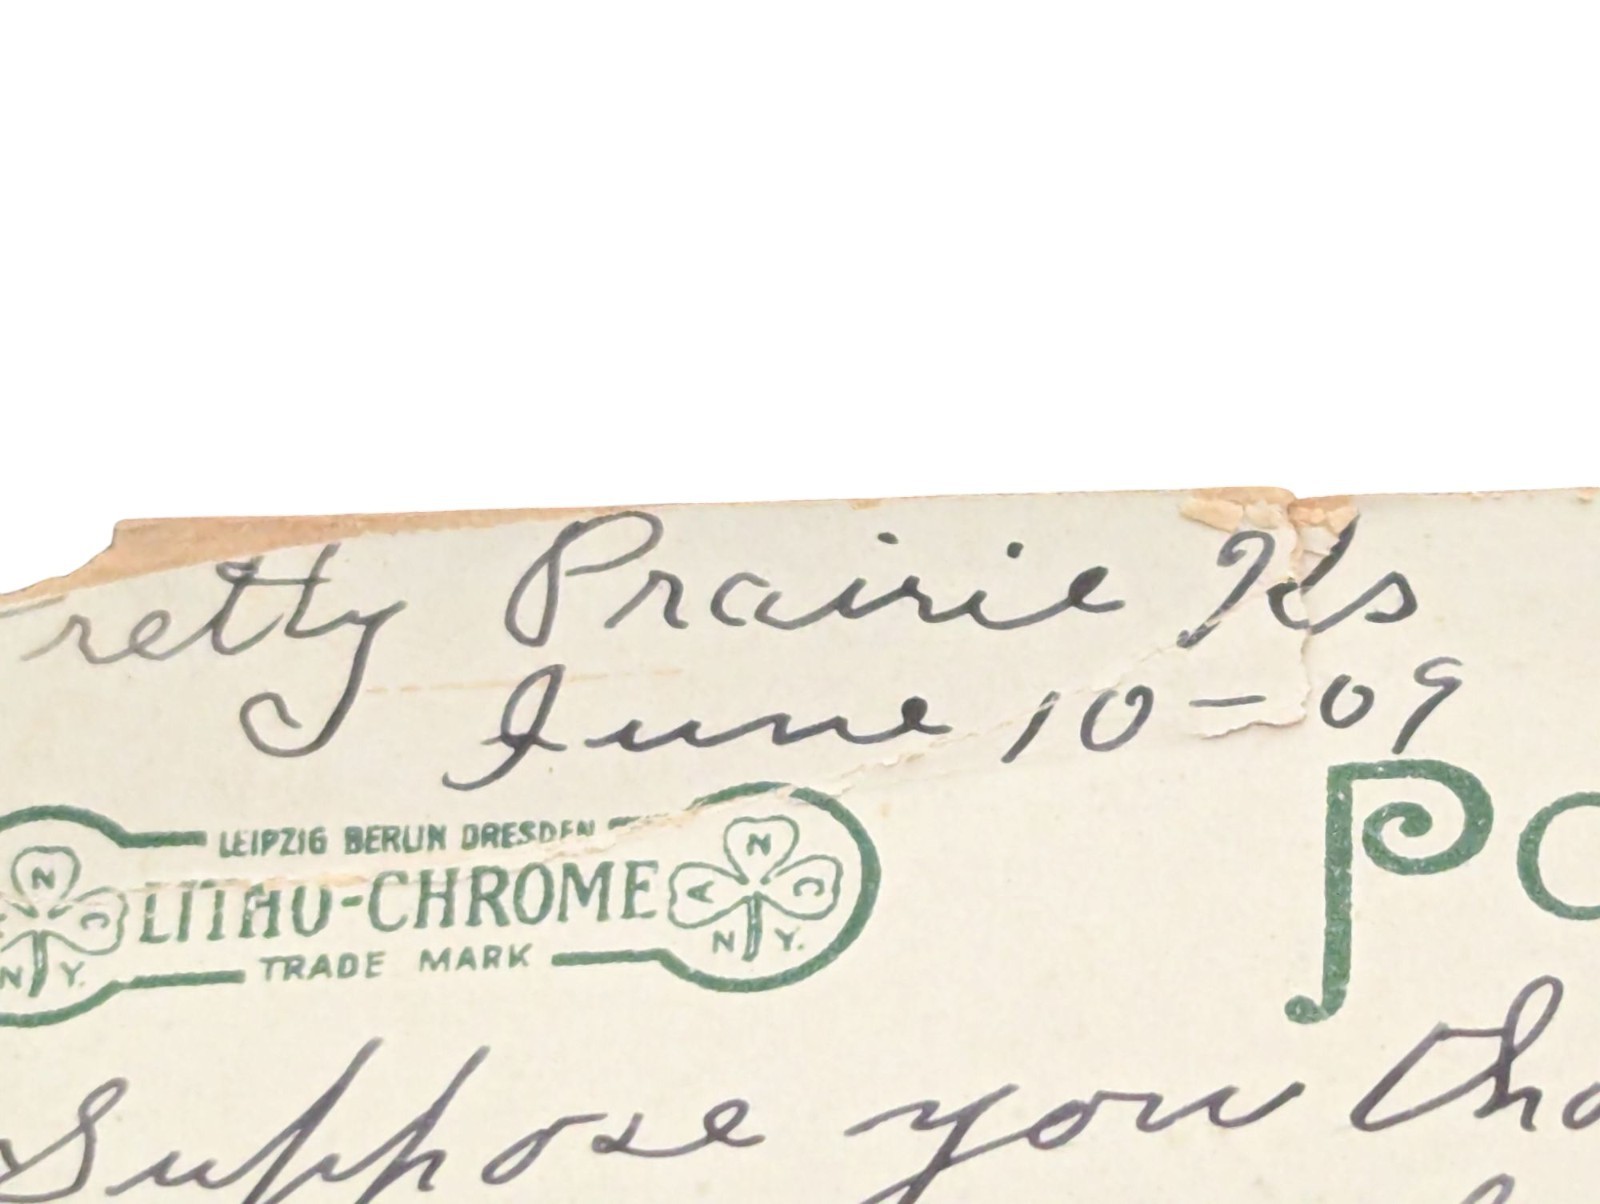 retty Prairie Ks
June 10-09
LEIPZIG BERLIN DRESDEN
LITHO-CHROME
TRADE MARK
N
C
N Y.
N
A C
N Y.
Po
Suppose you